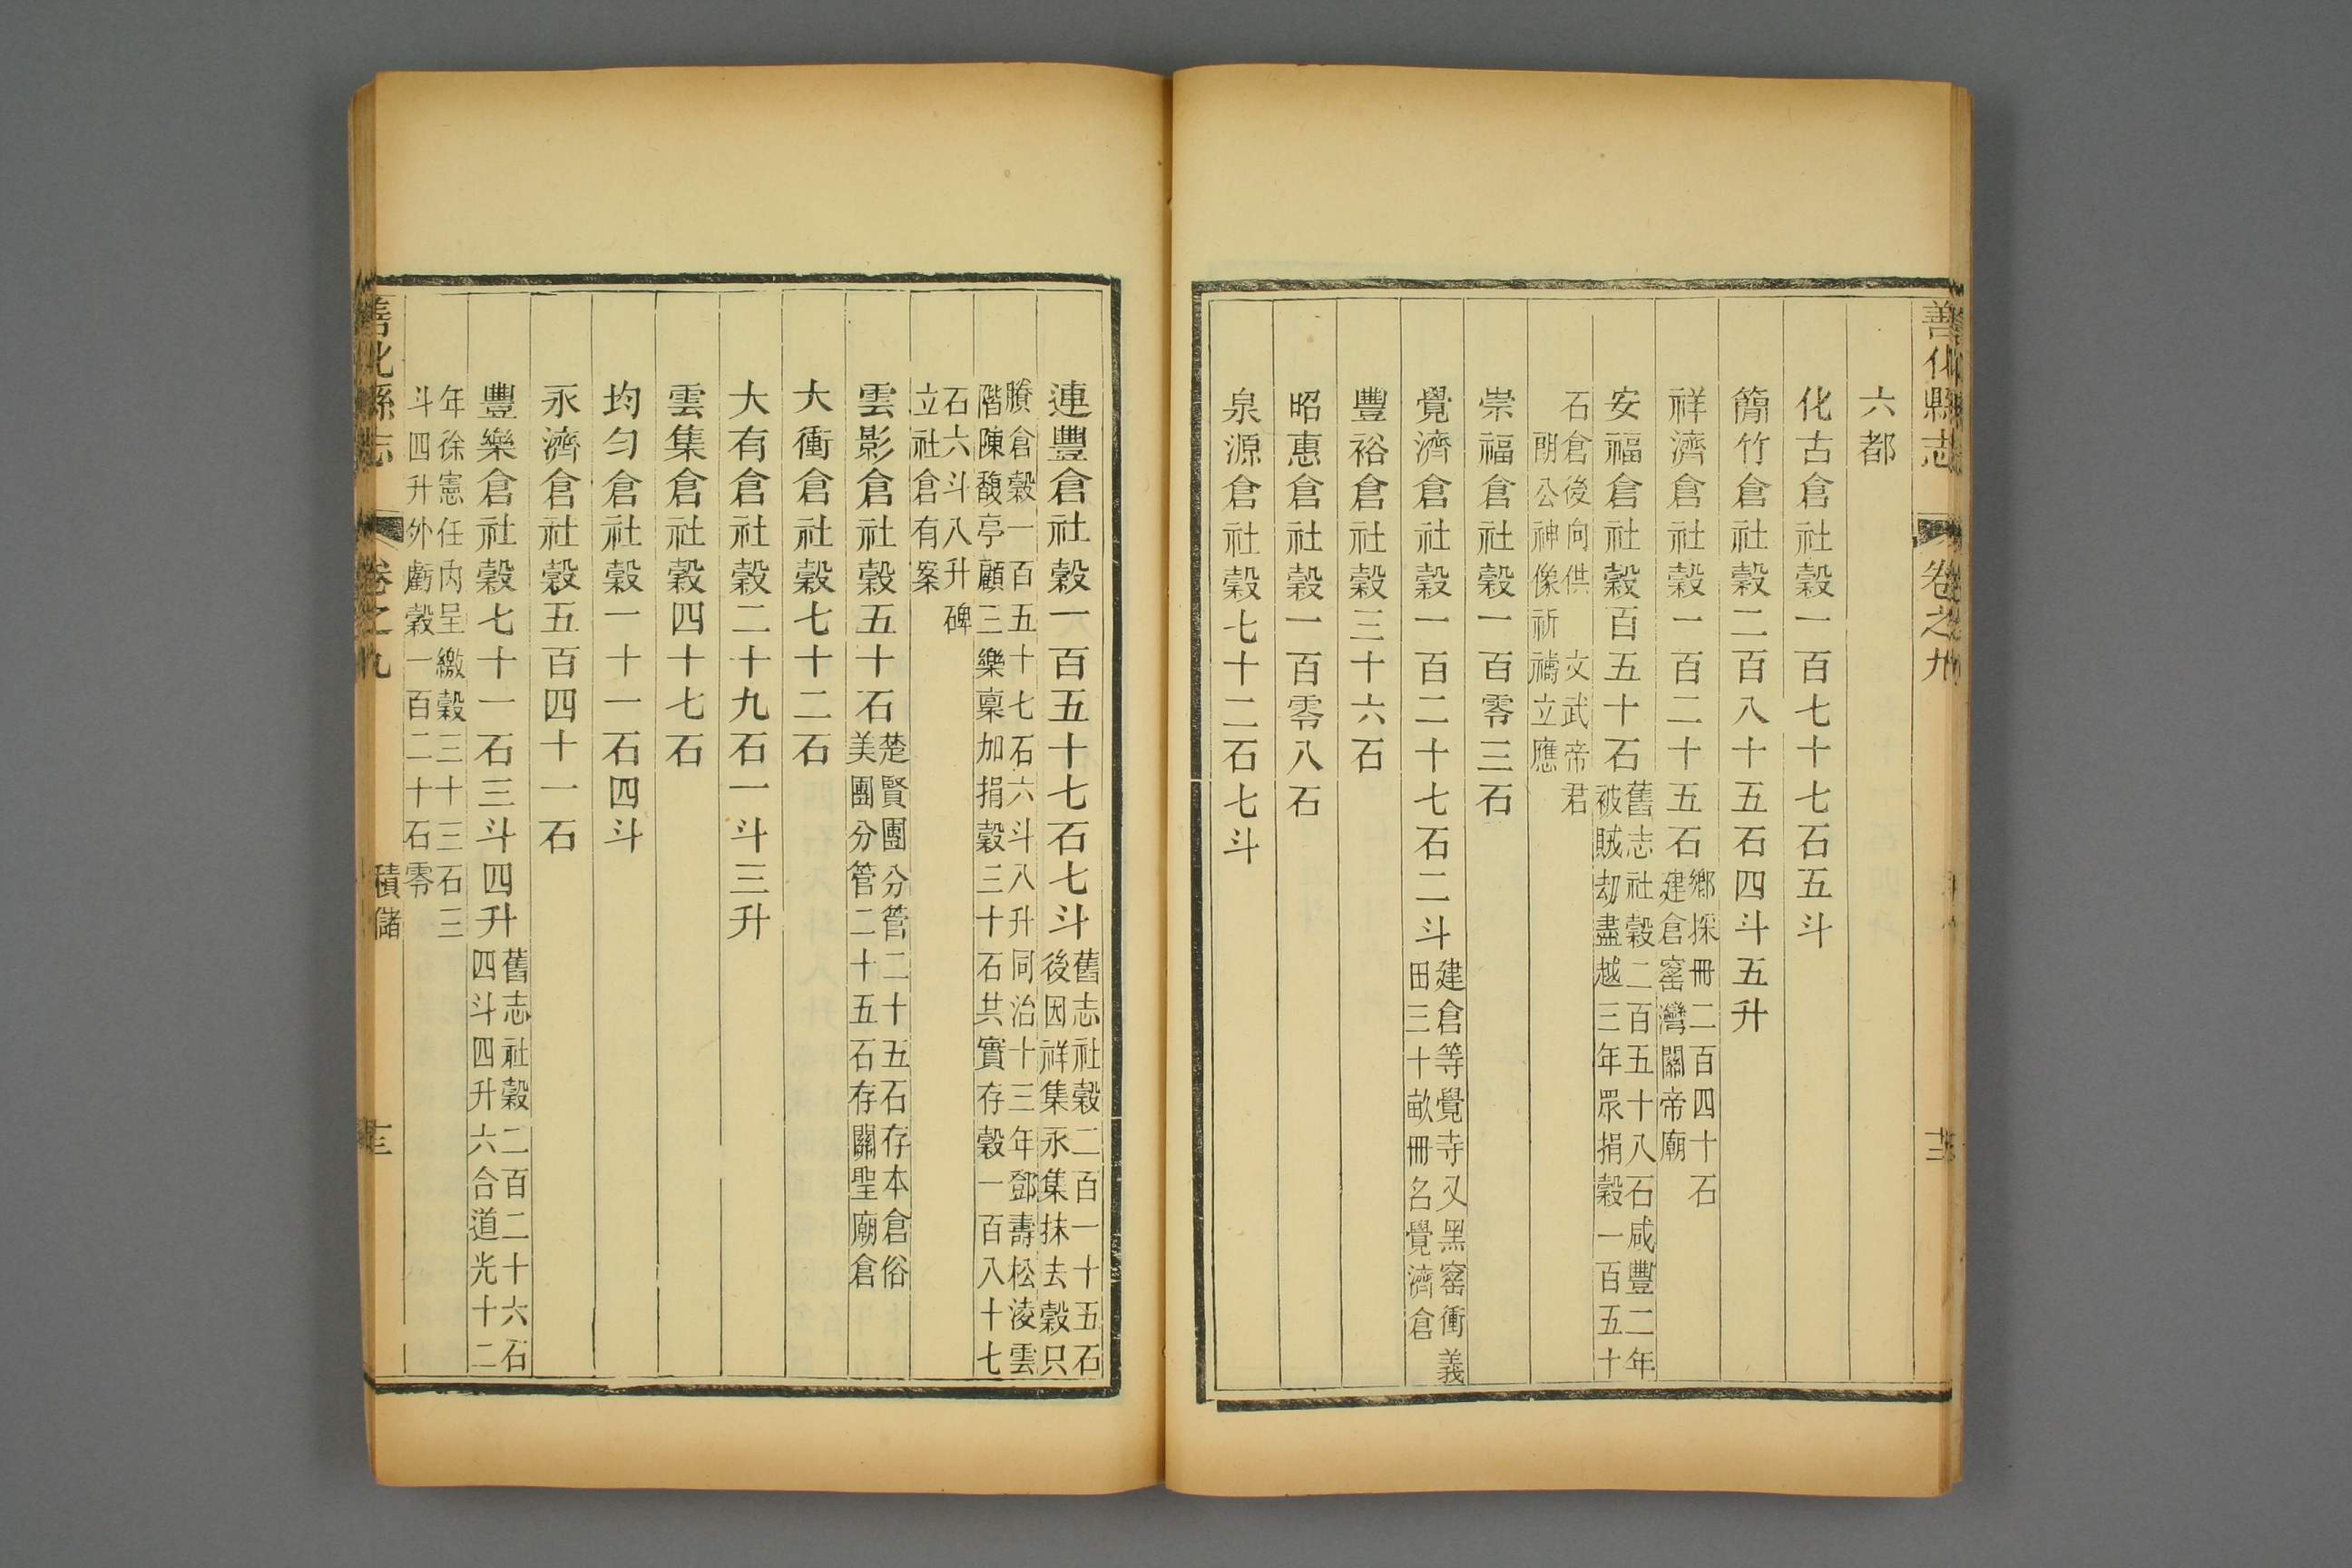 善化縣志
卷之九
六都
化古倉社穀一百七十七石五斗
簡竹倉社穀二百八十五石四斗五升
祥濟倉社穀一百二十五石鄉採冊二百四十石
建倉窰灣關帝廟
安福倉社穀百五十石舊志社穀二百五十八石咸豐二年
被賊刼盡越三年眾捐穀一百五十
石倉後向供 文武帝君
朗公神像祈禱立應
崇福倉社穀一百零三石
覺濟倉社穀一百二十七石二斗建倉等覺寺又黑窰衝義
田三十畝冊名覺濟倉
豐裕倉社穀三十六石
昭惠倉社穀一百零八石
泉源倉社穀七十二石七斗
連豐倉社穀一百五十七石七斗舊志社穀二百一十五石
後因祥集永集抹去穀只
賸倉穀一百五十七石六斗八升同治十三年鄧壽松淩雲
階陳馥亭顧三樂稟加捐穀三十石共實存穀一百八十七
石六斗八升碑
立社倉有案
雲影倉社穀五十石楚賢團分管二十五石存本倉俗
美團分管二十五石存關聖廟倉
大衝倉社穀七十二石
大有倉社穀二十九石一斗三升
雲集倉社穀四十七石
均勻倉社穀一十一石四斗
永濟倉社穀五百四十一石
豐樂倉社穀七十一石三斗四升舊志社穀二百二十六石
四斗四升六合道光十二
年徐憲任內呈繳穀三十三石三
斗四升外虧穀一百二十石零
善化縣志
卷之九
積儲